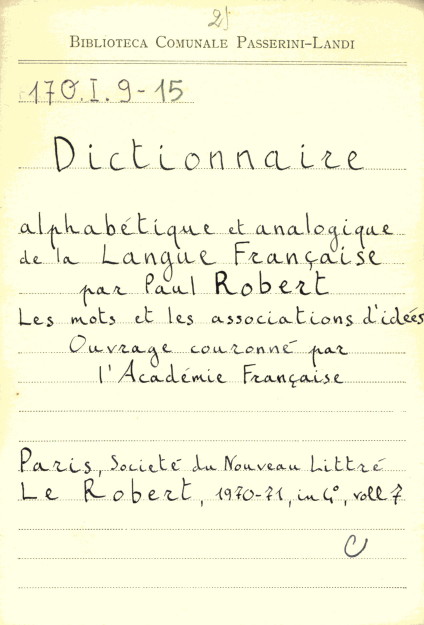 25
BIBLIOTECA COMUNALE PASSERINI-LANDI
170.I.9-15
Dictionnaire
alphabétique et analogique
de la Langue Française
par Paul Robert
Les mots et les associations d'idées
Ouvrage couronné par
l'Académie Française
Paris, Societé du Nouveau Littré
Le Robert, 1970-71, in 4°, voll 7
C